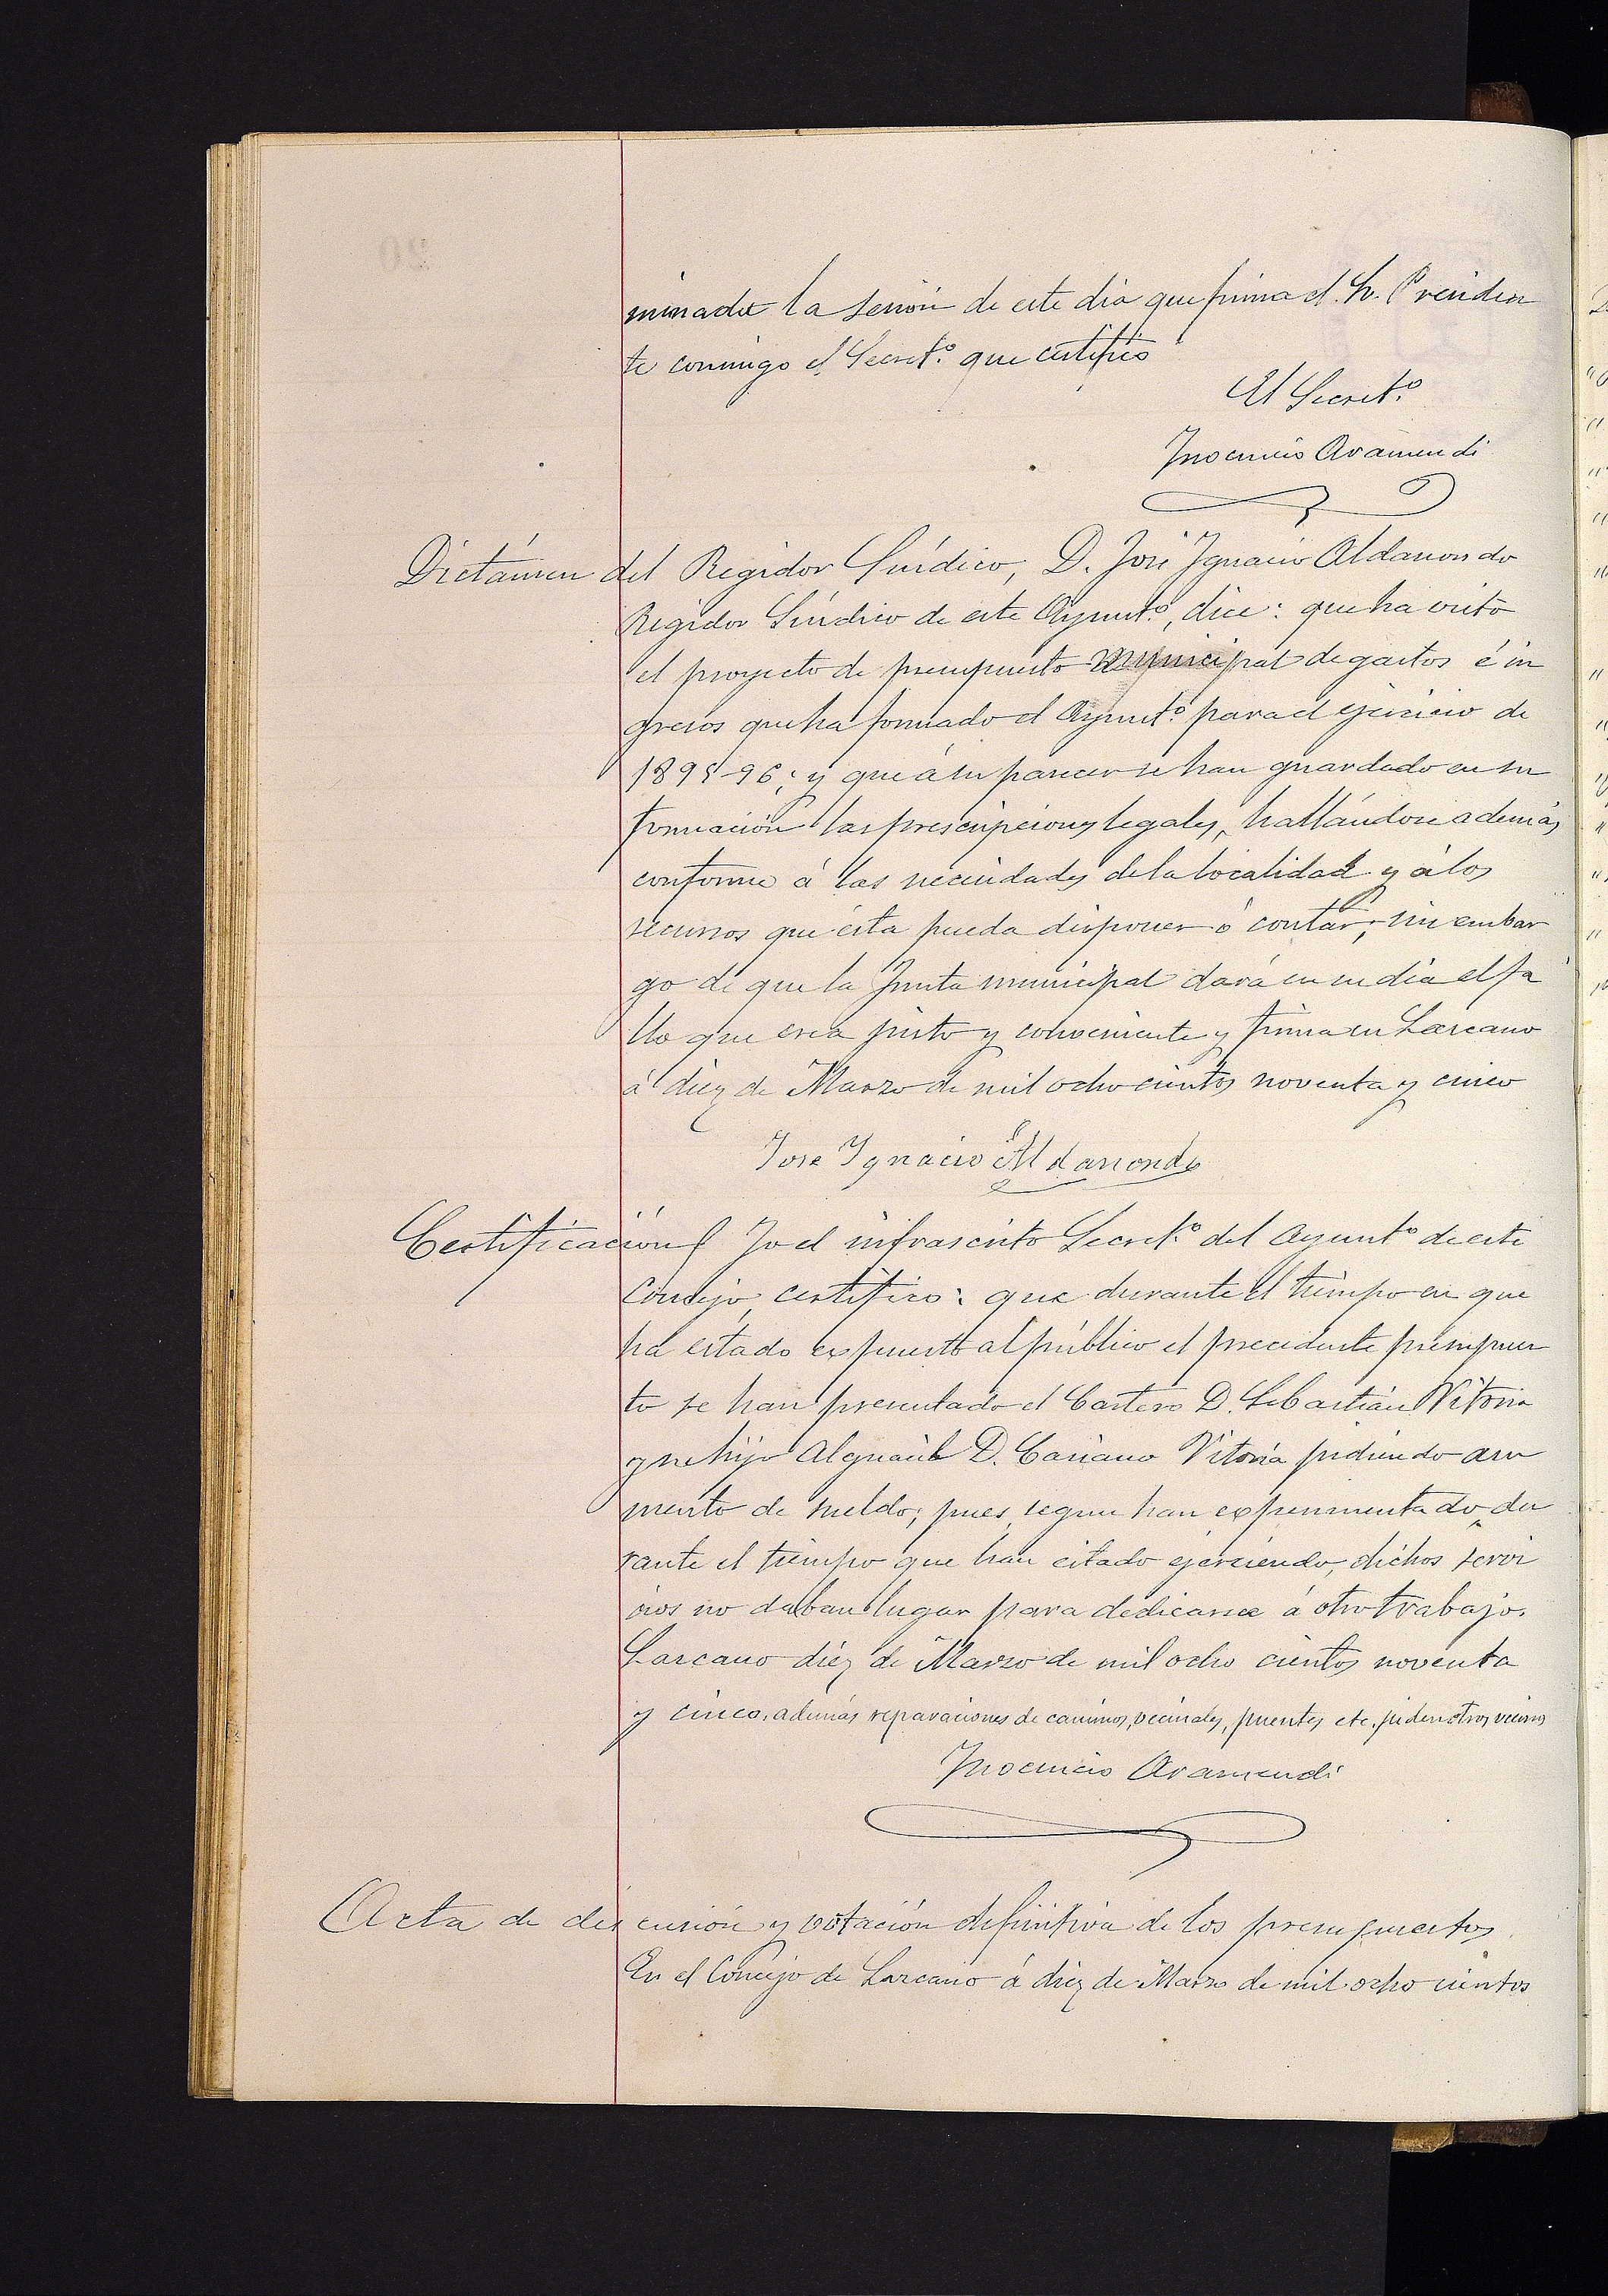 minada la sesión de este dia que firma el Sr. Presiden
te conmigo el Secret.º que certifico
El Secret.º
Inocencio Aramendi
Dictámen del Regidor Síndico, D. José Ignacio Aldanondo
Regidor Síndico de este Ayunt.º, dice: que ha visto
el proyecto de presupuesto municipal de gastos é in
gresos que ha formado el Ayunt.º para el ejercicio de
1895-96; y que á su parecer se han guardado en su
formación las prescripciones legales, hallándose además
conforme á las necesidades de la localidad y á los
recursos que ésta pueda disponer ó contar; sin embar
go de que la Junta municipal dará en su dia el fa
llo que crea justo y conveniente y firma en Larcano
á diez de Marzo de mil ochocientos noventa y cinco
Jose Ignacio Aldanondo
Certificación Yo el infrascrito Secret.º del Ayunt.º de este
Concejo, certifico: que durante el tiempo en que
ha estado expuesto al público el precedente presupues
to se han presentado el Cartero D. Sebastián Vitoria
y su hijo Alguacil D. Casiano Vitoria pidiendo au
mento de sueldo; pues, segun han experimentado, du
rante el tiempo que han estado ejerciendo, dichos servi
cios no daban lugar para dedicarse á otro trabajo.
Larcano diez de Marzo de mil ocho cientos noventa
y cinco, además reparaciones de caminos, vecinales, puentes etc. piden otros vecinos
Inocencio Aramendi
Acta de discusión y votación definitiva de los presupuestos
En el Concejo de Larcano á diez de Marzo de mil ocho cientos